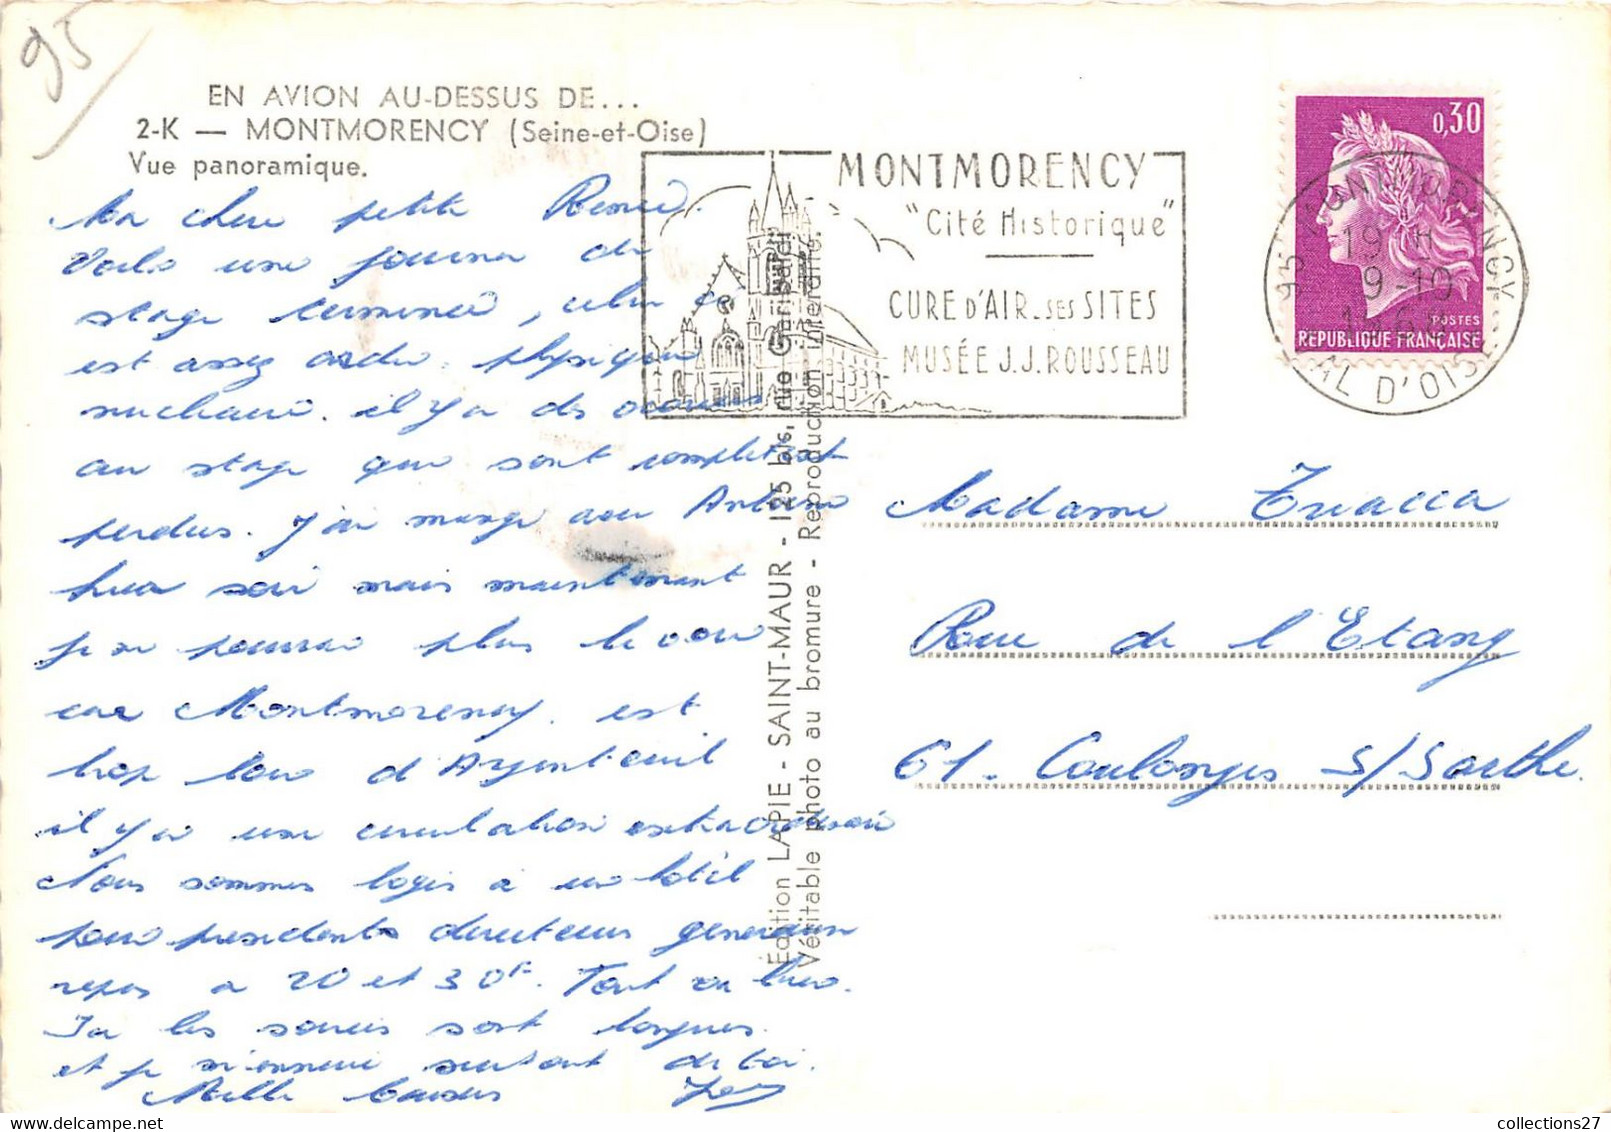 95
EN AVION AU-DESSUS DE...
2-K — MONTMORENCY (Seine-et-Oise)
Vue panoramique.
Ma chere petite Renée.
Voila une journée de
stage terminée, celui ci
est assez ardu. physique
nucleaire. il y a des
au stage qui sont completement
perdus. J'ai mangé avec Antoine
hier soir mais maintenant
je ne pourrai plus le voir
car Montmorency. est
trop loin d'Argenteuil
il y a une circulation extraordinaire
Nous sommes logés à un hotel
pour presidents directeurs generaux
repas a 20 et 30F. Tout au luxe.
Ici les soirées sont longues.
et je m'ennuie surtout de toi.
Mille baisers
MONTMORENCY
"Cité Historique"
CURE D'AIR. SES SITES
MUSÉE J.J. ROUSSEAU
0,30
POSTES
RÉPUBLIQUE FRANÇAISE
95 MONTMORENCY
19 H
9-10
VAL D'OISE
Édition LAPIE - SAINT-MAUR - 125 bis, rue Garibaldi
Véritable photo au bromure - Reproduction interdite.
Madame Truacca
Rue de l'Etang
61. Coulonges s/Sarthe.
collections27